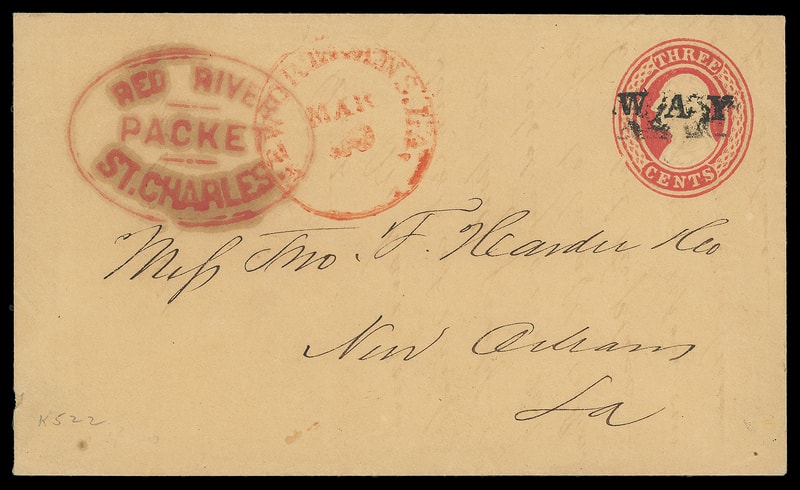 RED RIVER
PACKET
ST. CHARLES
NEW ORLEANS, LA.
MAR
THREE
CENTS
WAY
Mess Tho. F. Harder & Co
New Orleans
La
K522